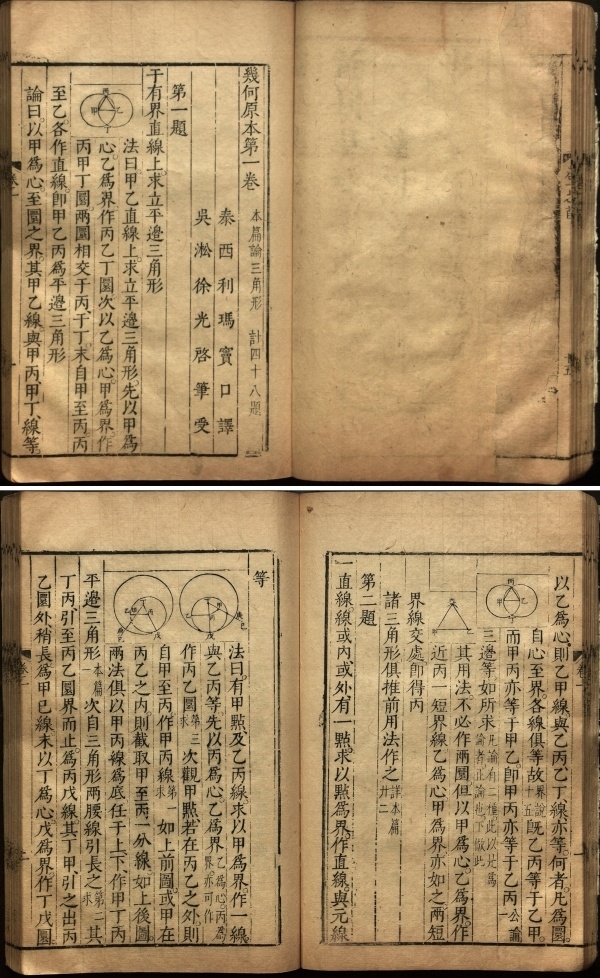 幾何原本第一卷 本篇論三角形 計四十八題
泰西利瑪竇口譯
吳淞徐光啓筆受
第一題
于有界直線上求立平邊三角形
法曰甲乙直線上求立平邊三角形先以甲爲
心乙爲界作丙乙丁圜次以乙爲心甲爲界作
丙甲丁圜兩圜相交于丙于丁末自甲至丙丙
至乙各作直線卽甲乙丙爲平邊三角形
論曰以甲爲心至圜之界其甲乙線與甲丙甲丁線等
以乙爲心則乙甲線與乙丙乙丁線亦等何者凡爲圜
自心至界各線俱等故界說十五旣乙丙等于乙甲
而甲丙亦等于甲乙卽甲丙亦等于乙丙公論一
三邊等如所求凡論有二種此以是爲論者正論也下倣此
其用法不必作兩圜但以甲爲心乙爲界作
近丙一短界線乙爲心甲爲界亦如之兩短
界線交處卽得丙
諸三角形俱推前用法作之詳本篇廿二
第二題
一直線線或內或外有一點求以點爲界作直線與元線
等
法曰有甲點及乙丙線求以甲爲界作一線
與乙丙等先以丙爲心乙爲界乙爲心丙爲界亦可作
作丙乙圜第三求次觀甲點若在丙乙之外則
自甲至丙作甲丙線第一求如上前圖或甲在
丙乙之內則截取甲至丙一分線如上後圖
兩法俱以甲丙線爲底任于上下作甲丁丙
平邊三角形本篇一次自三角形兩腰線引長之第二求其
丁丙引至丙乙圜界而止爲丙戊線其丁甲引之出丙
乙圜外稍長爲甲己線末以丁爲心戊爲界作丁戊圜